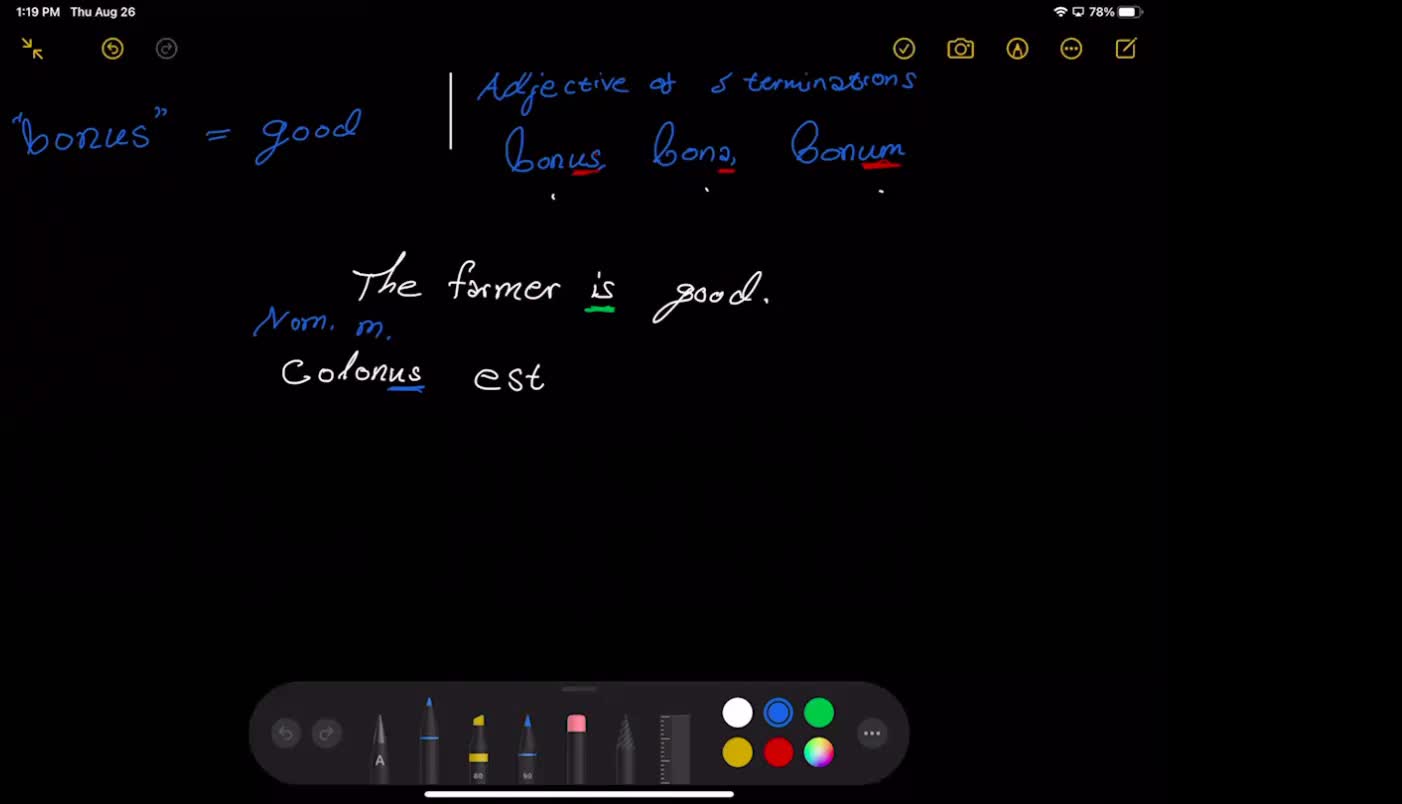 1:19 PM Thu Aug 26
78%
Adjective of 3 terminations
"bonus" = good
bonus, bona, bonum
The farmer is good.
Nom. m.
Colonus est
A
80
50